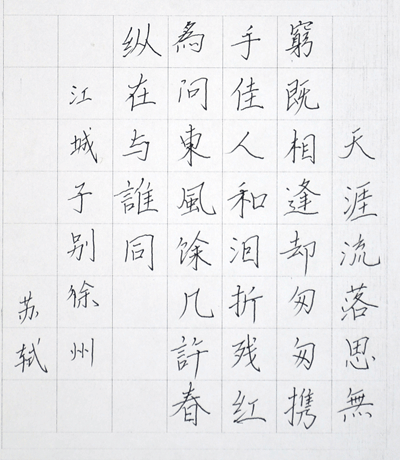 天涯流落思無
窮既相逢却匆匆携
手佳人和泪折残紅
為問東風馀几許春
纵在与誰同
江城子别徐州
苏轼